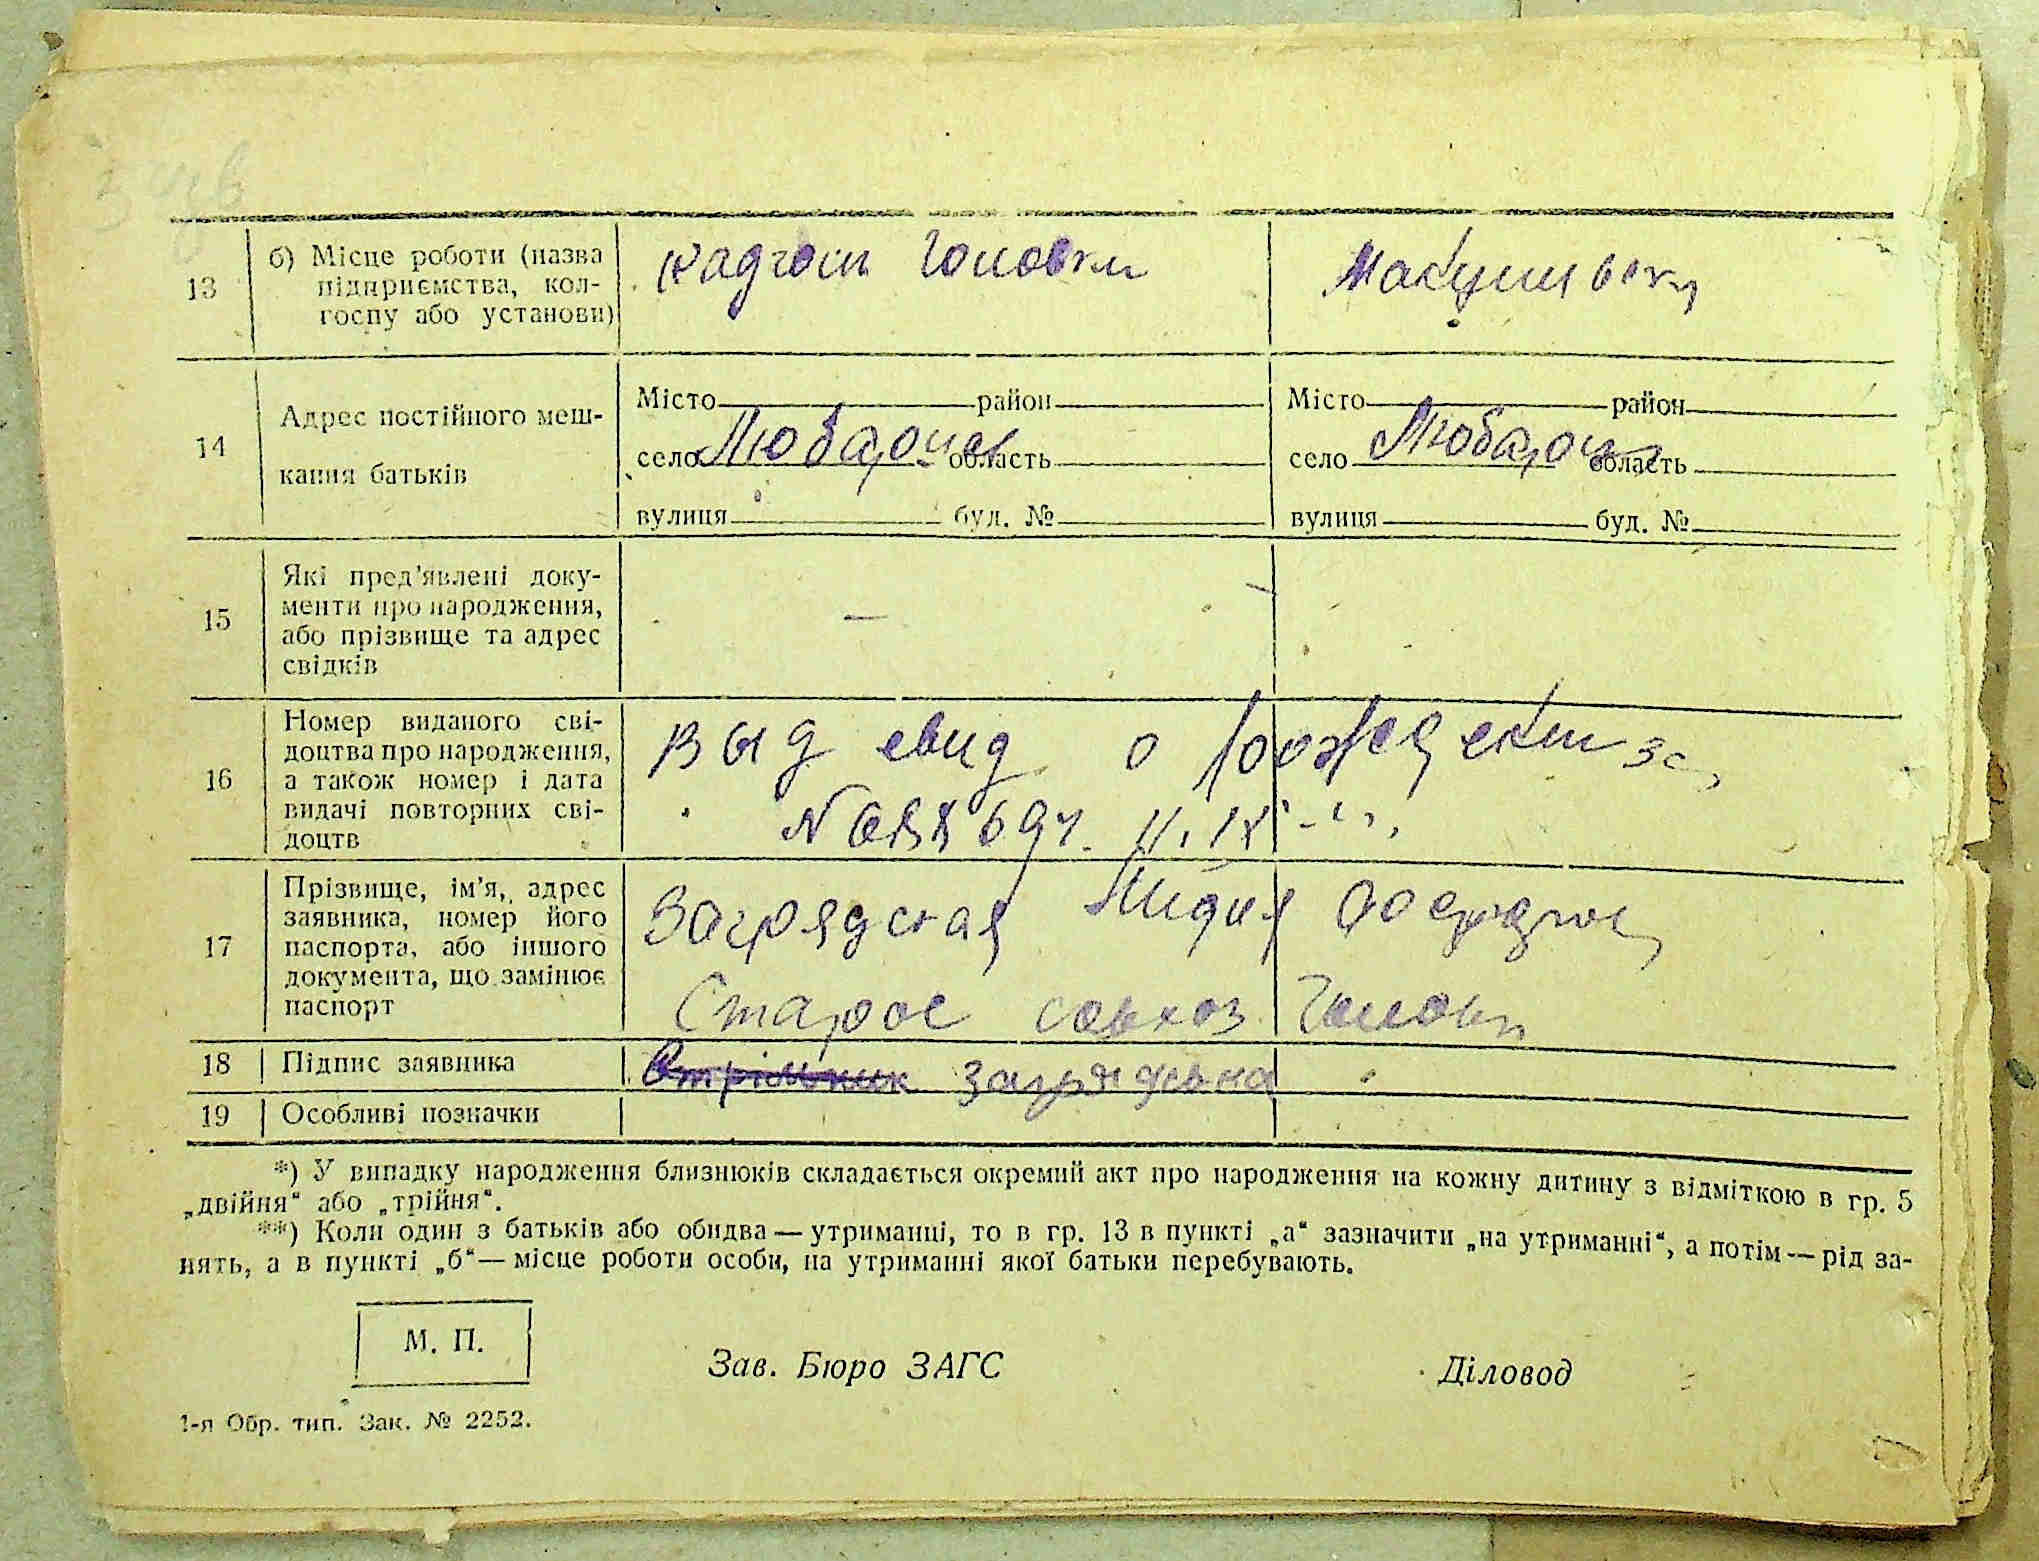 13
б) Місце роботи (назва
підприємства, кол-
госпу або установи)
14
Адрес постійного меш-
кання батьків
Місто район
село область
вулиця буд. №
Місто район
село область
вулиця буд. №
15
Які пред’явлені доку-
менти про народження,
або прізвище та адрес
свідків
—
16
Номер виданого сві-
доцтва про народження,
а також номер і дата
видачі повторних сві-
доцтв
Выд свид о за
17
Прізвище, ім’я, адрес
заявника, номер його
паспорта, або іншого
документа, що замінює
паспорт
Загрядская Лидия
Старое совхоз
18
Підпис заявника
19
Особливі позначки
*) У випадку народження близнюків складається окремий акт про народження на кожну дитину з відміткою в гр. 5
„двійня“ або „трійня“.
**) Коли один з батьків або обидва — утриманці, то в гр. 13 в пункті „а“ зазначити „на утриманні“, а потім — рід за-
нять, а в пункті „б“ — місце роботи особи, на утриманні якої батьки перебувають.
М. П.
Зав. Бюро ЗАГС
Діловод
1-я Обр. тип. Зак. № 2252.